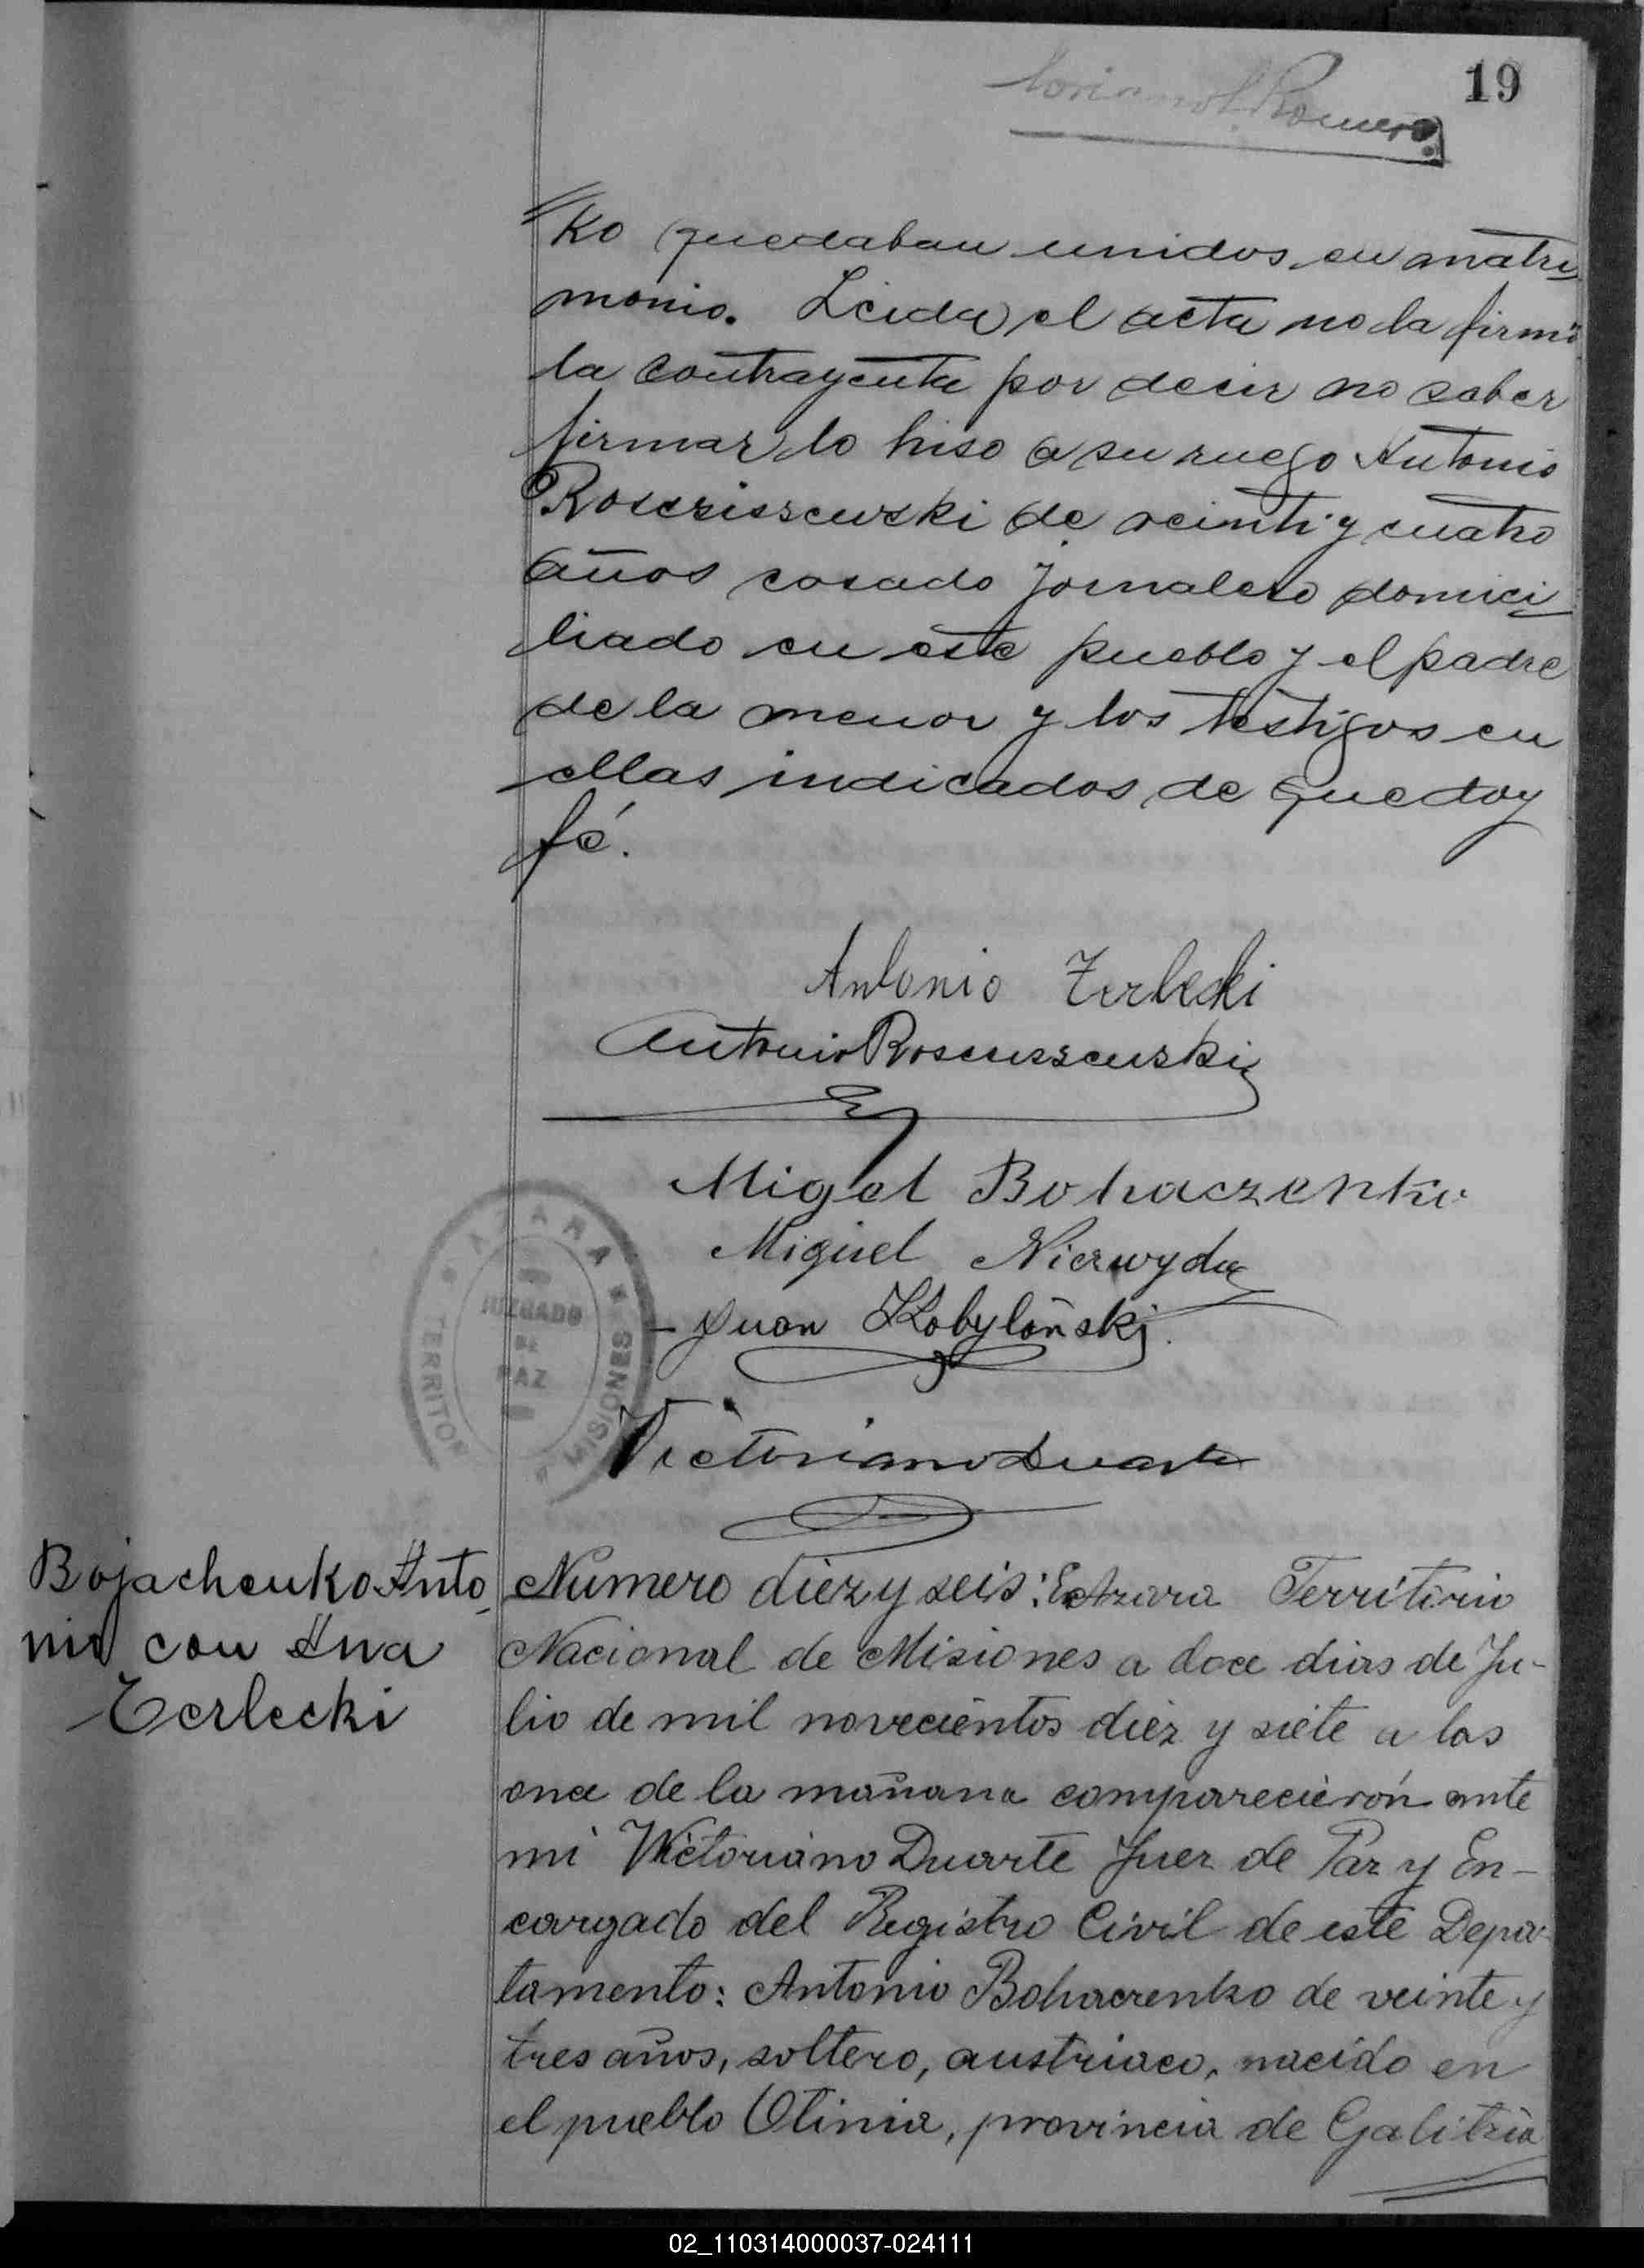 19
Romero
Ko quedaban unidos en matri
monio. Leida el acta no la firmó
la contrayenta por decir no saber
firmar lo hiso a su ruego Antonio
de veinti y cuatro
años casado jornalero domici
liado en este pueblo y el padre
de la menor y los testigos en
ellas indicados de que doy
fé.
Antonio Terlecki
Antonio
Migel Bohaczenko
Miguel Niezwyda
Juan Kobylański
AZARA
JUZGADO
DE
PAZ
TERRITOR
MISIONES
Victoriano Duarte
Bojachenko Anto
nio con Ana
Terlecki
Numero diez y seis: En Azara Territorio
Nacional de Misiones a doce dias de Ju-
lio de mil novecientos diez y siete a las
once de la mañana comparecierón ante
mi Victoriano Duarte Juez de Paz y En-
cargado del Registro Civil de este Depar
tamento: Antonio Bohaczenko de veinte y
tres años, soltero, austriaco, nacido en
el pueblo Olinia, provincia de Galitzia
02_110314000037-024111